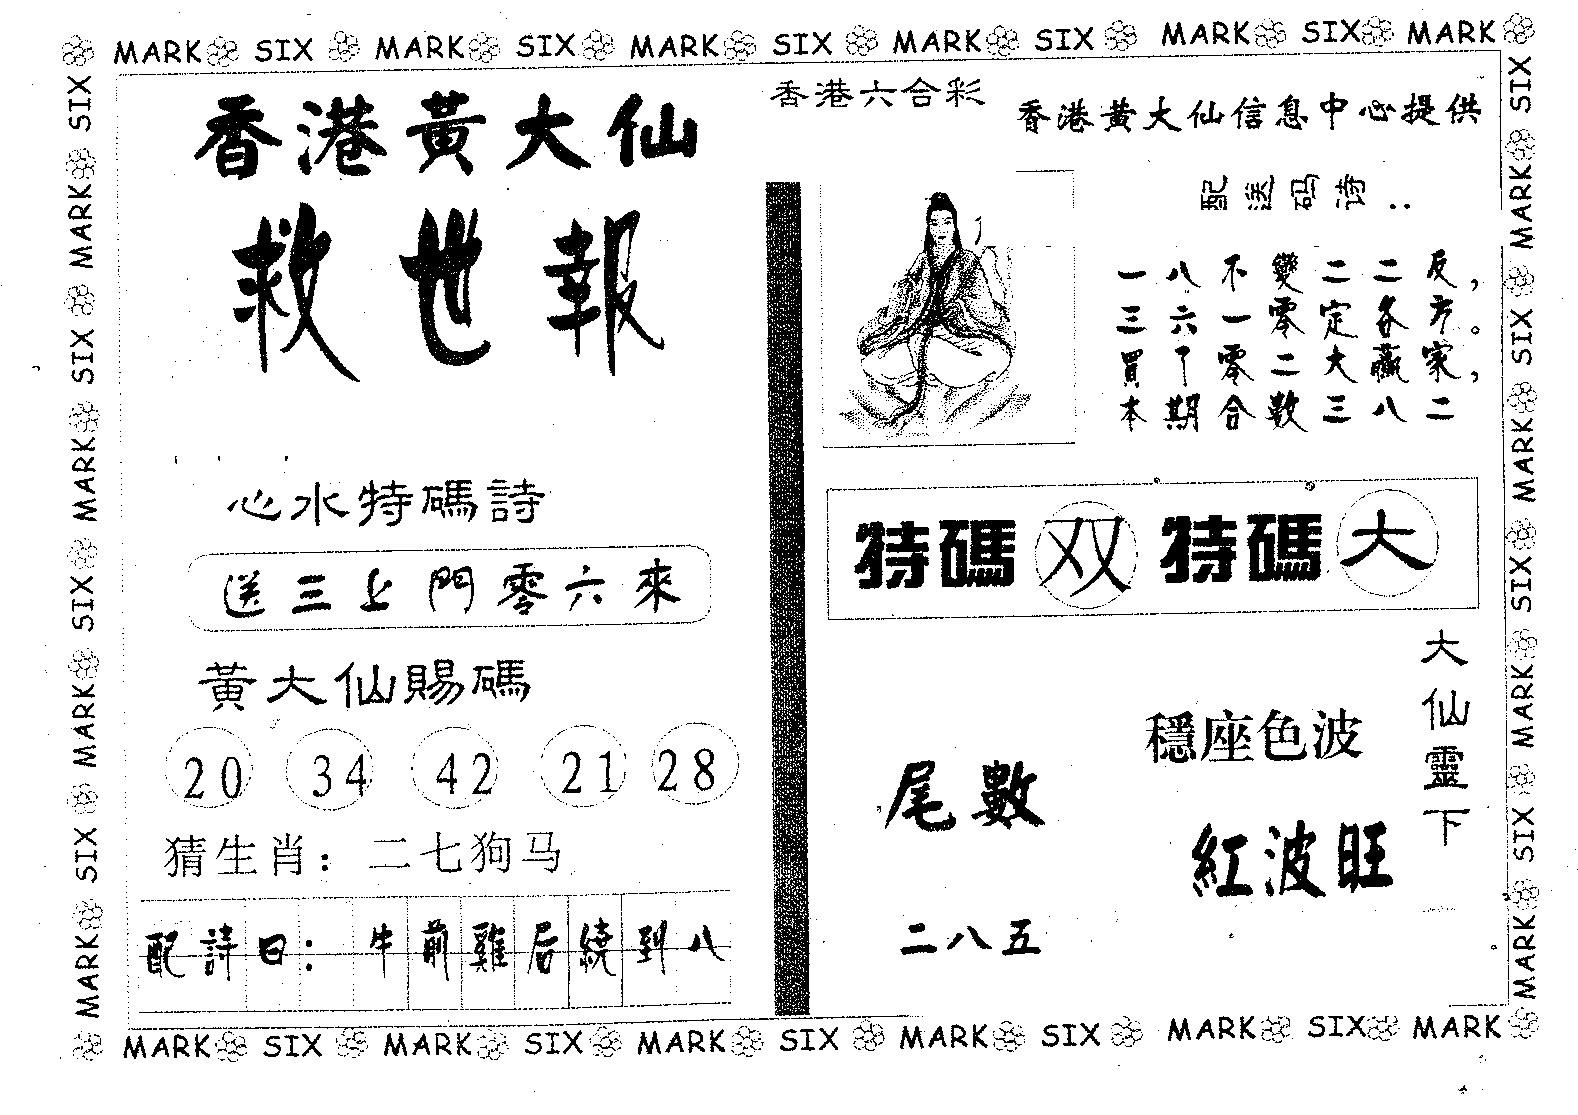 MARK SIX MARK SIX MARK SIX MARK SIX MARK SIX MARK
香港黃大仙
救世報
心水特碼詩
送三上門零六來
黃大仙賜碼
20 34 42 21 28
猜生肖：二七狗马
配詩曰：牛前雞后繞到八
香港六合彩
香港黄大仙信息中心提供
配送码诗：
一八不變二二反，
三六一零定各方。
買了零二大贏家，
本期合数三八二
特碼双 特碼大
大仙靈下
穩座色波
紅波旺
尾數
二八五
SIX MARK SIX MARK SIX MARK SIX MARK
SIX MARK SIX MARK SIX MARK SIX MARK
MARK SIX MARK SIX MARK SIX MARK SIX MARK SIX MARK